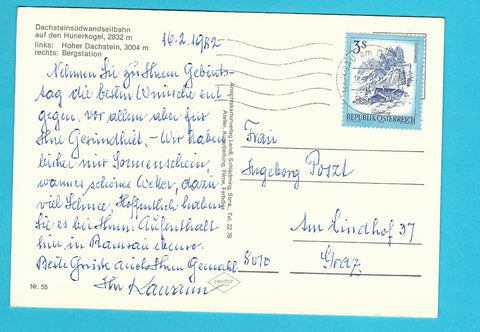 Dachsteinsüdwandseilbahn
auf den Hunerkogel, 2832 m
links: Hoher Dachstein, 3004 m
rechts: Bergstation
16.2.1982
Nehmen Sie zu Ihrem Geburts-
tag die besten Wünsche ent
gegen, vor allem aber für
Ihre Gesundheit. - Wir haben
bisher nur Sonnenschein,
warmes schönes Wetter, dazu
viel Schnee. Hoffentlich haben
Sie es bei Ihrem Aufenthalt
hier in Ramsau ebenso.
Beste Grüsse auch Ihrem Gemahl
Ihr
Nr. 55
Ansichtskartenverlag Landl, Schladming, Stmk., Tel. 22 78
3 S
REPUBLIK ÖSTERREICH
Frau
Ingeborg Poszt
Am Lindhof 37
8010 Graz